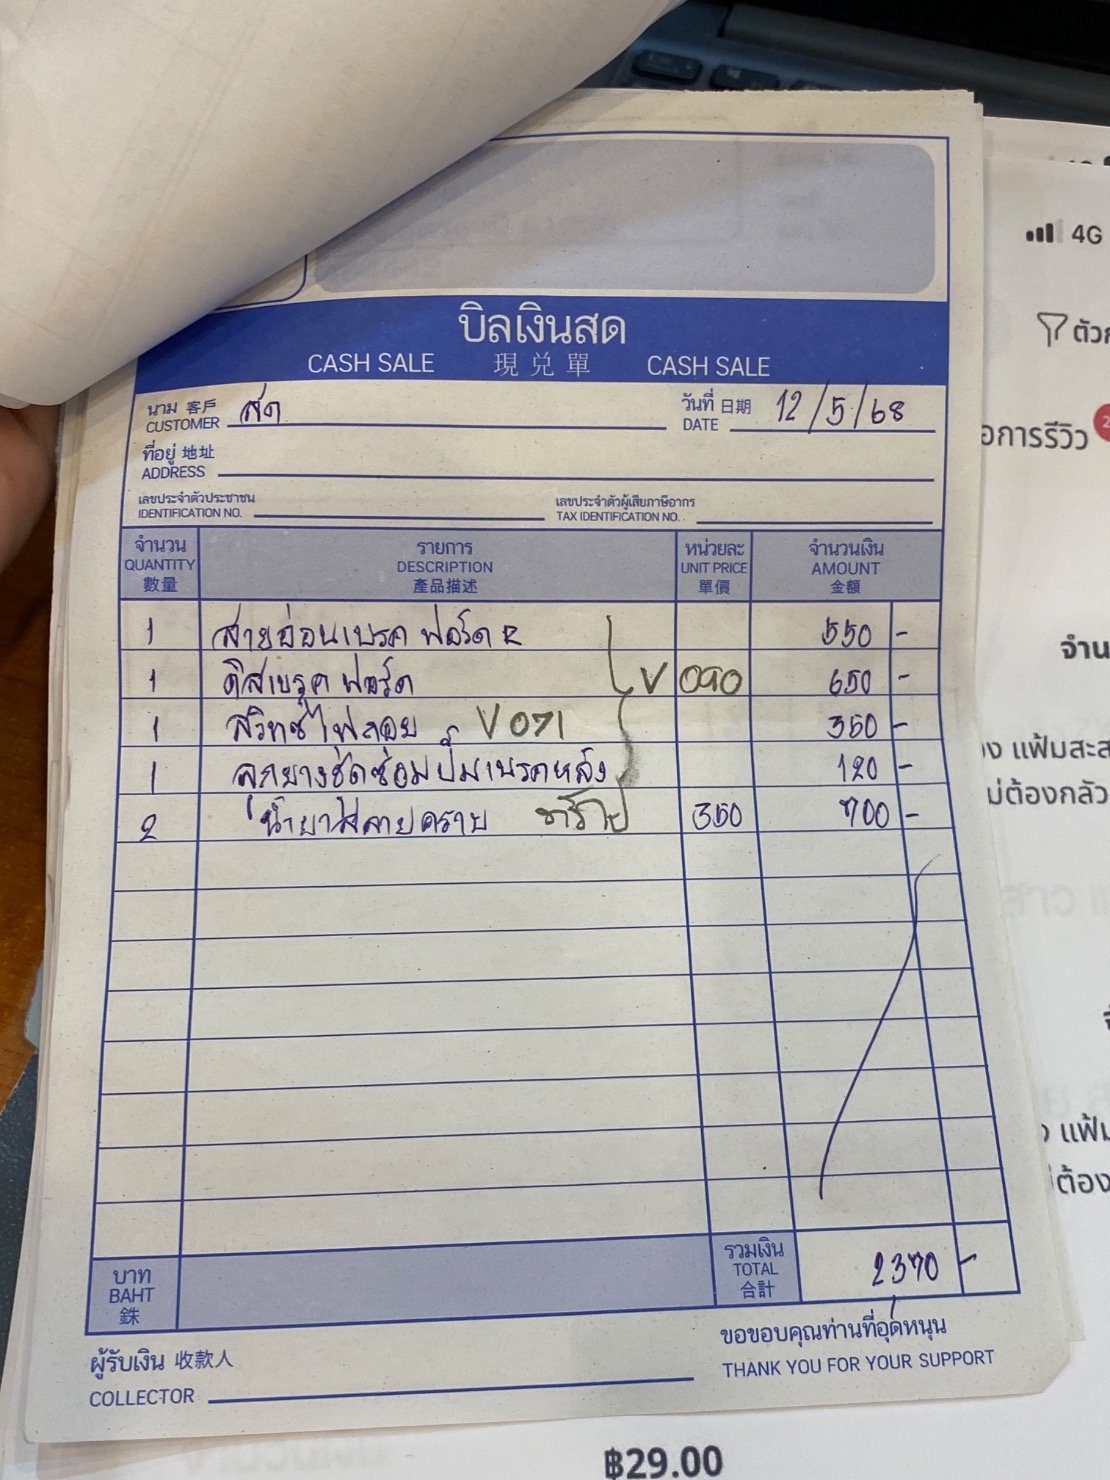 บิลเงินสด
CASH SALE 現兑單 CASH SALE
นาม 客戶 CUSTOMER สด วันที่ 日期 DATE 12/5/68
ที่อยู่ 地址 ADDRESS
เลขประจำตัวประชาชน IDENTIFICATION NO. เลขประจำตัวผู้เสียภาษีอากร TAX IDENTIFICATION NO.
จำนวน รายการ หน่วยละ จำนวนเงิน
QUANTITY DESCRIPTION UNIT PRICE AMOUNT
數量 產品描述 單價 金額
1 สายอ่อนเบรค ฟอร์ด R 550 -
1 ดิสเบรค ฟอร์ด V 090 650 -
1 สวิทซ์ไฟถอย V 071 350 -
1 ลูกยางชุดซ่อมปั๊มเบรคหลัง 120 -
2 น้ำยาใสลายคราบ 350 700 -
บาท BAHT 銖 รวมเงิน TOTAL 合計 2370 -
ผู้รับเงิน 收款人 COLLECTOR
ขอขอบคุณท่านที่อุดหนุน
THANK YOU FOR YOUR SUPPORT
4G
ตัวก
อการรีวิว 2
จำน
อง แฟ้มสะส
ม่ต้องกลัว
แฟ้ม
ต้อง
฿29.00